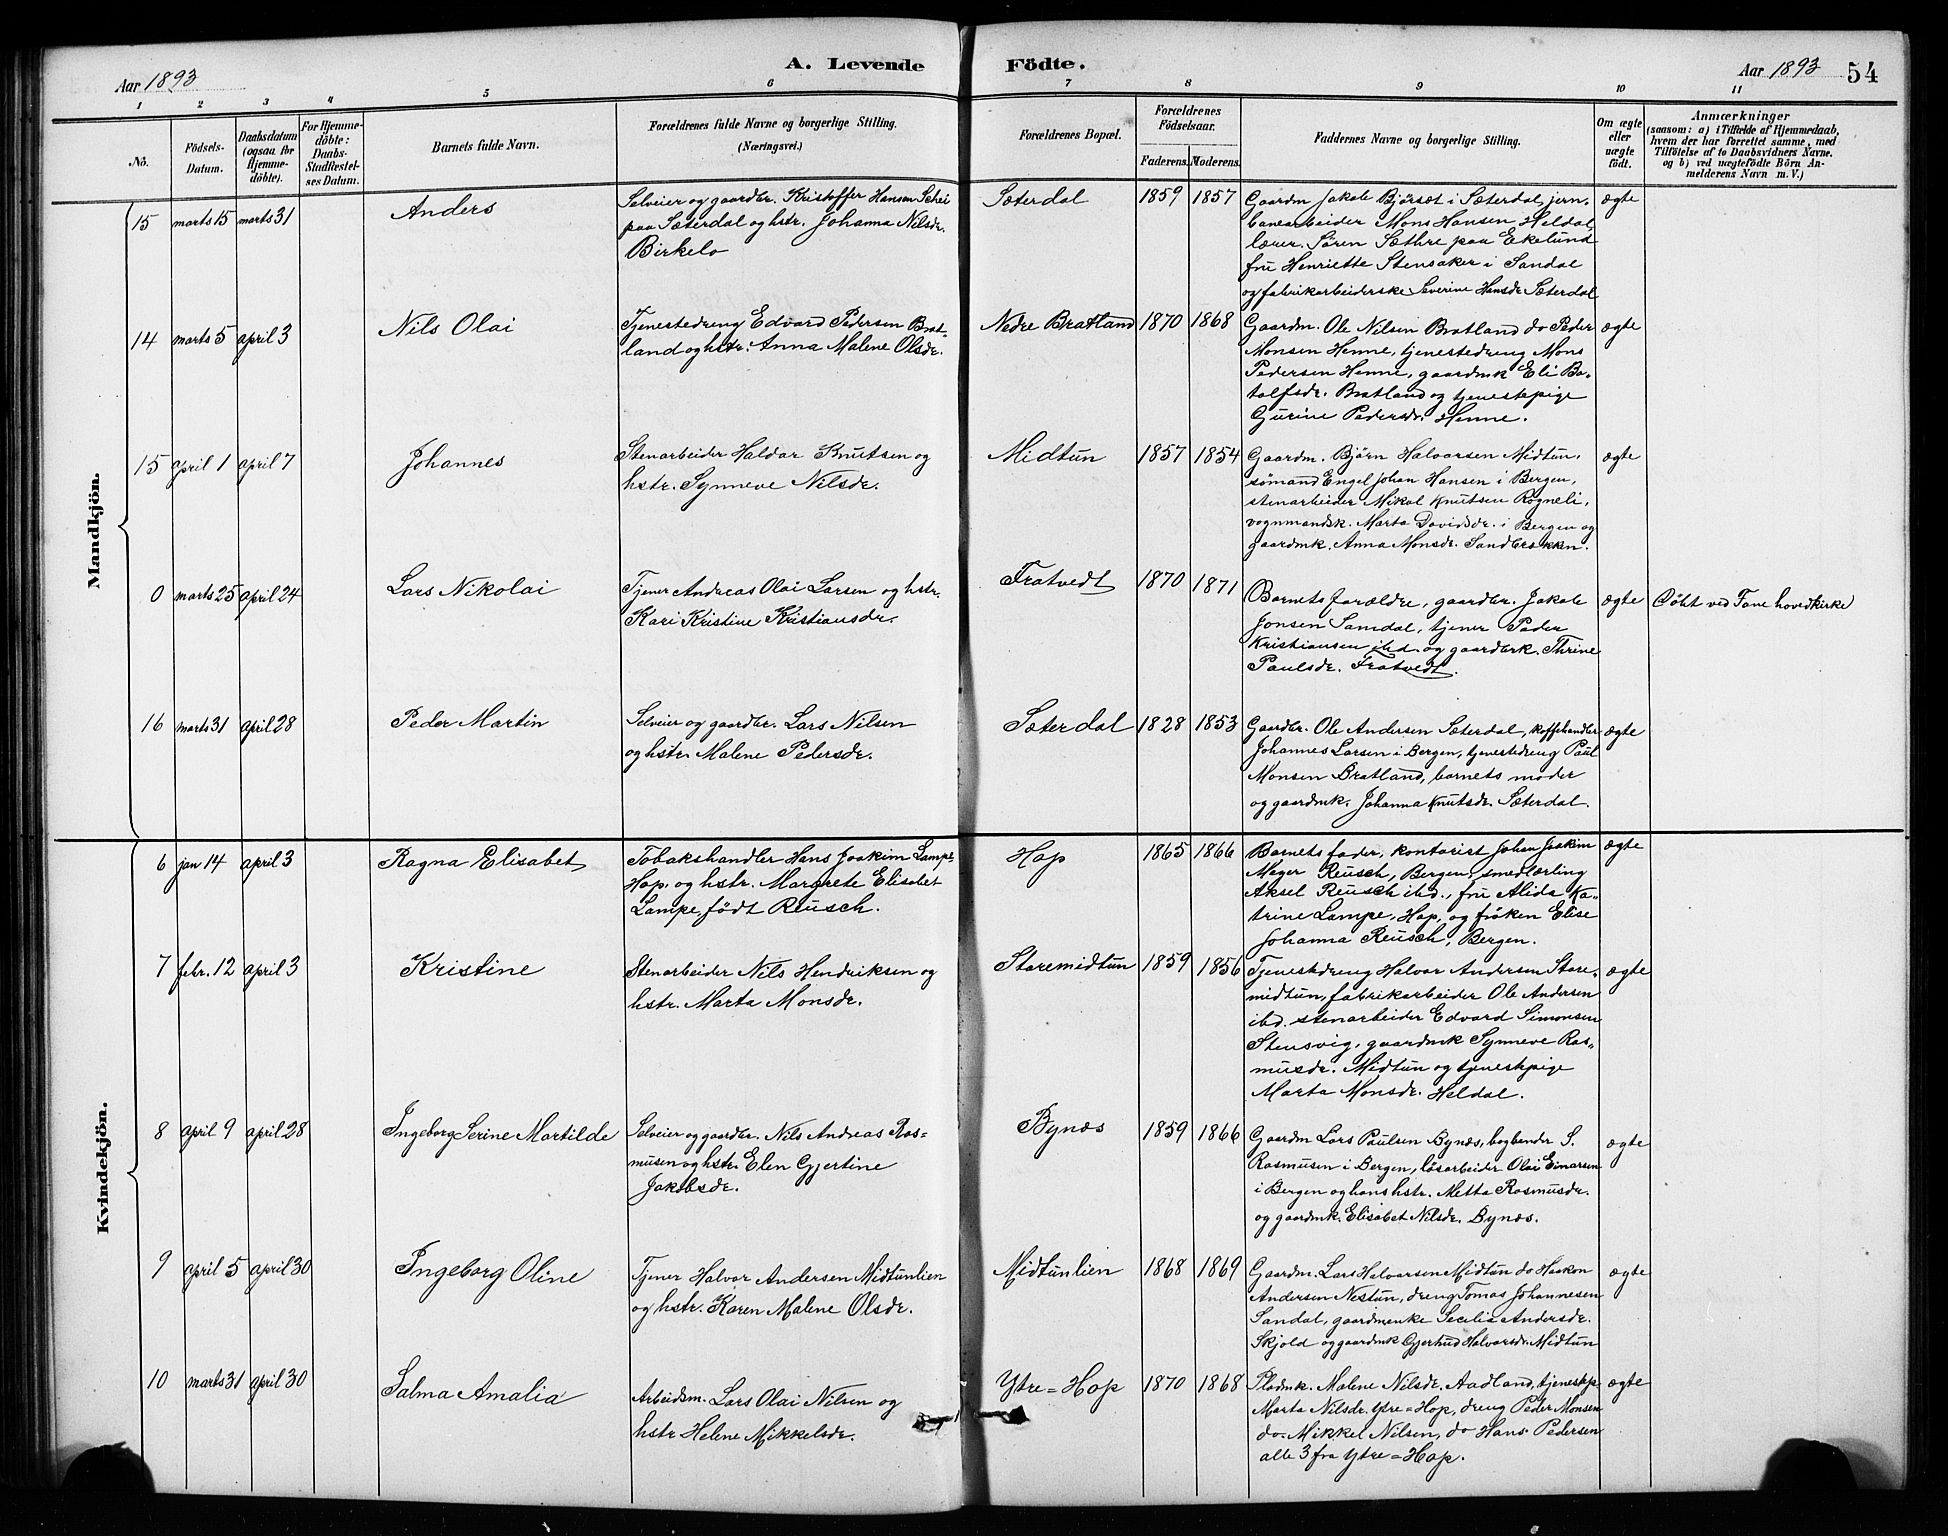 A. Levende Födte.
Aar 1893
Aar 1893
54
1 2 3 4 5 6 7 8 9 10 11
No.
Födsels-Datum.
Daabsdatum (ogsaa for Hjemme-döbte).
For Hjemme-döbte: Daabs-Stadfæstel-ses Datum.
Barnets fulde Navn.
Forældrenes fulde Navne og borgerlige Stilling.
(Næringsvei.)
Forældrenes Bopæl.
Forældrenes Födselsaar.
Faderens. Moderens.
Faddernes Navne og borgerlige Stilling.
Om ægte eller uægte födt.
Anmærkninger
(saasom: a) i Tilfælde af Hjemmedaab,
hvem der har forrettet samme, med
Tilföielse af to Daabsvidners Navne.
og b) ved uægtefödte Börn An-
melderens Navn m. V.)
Mandkjön.
15 marts 15 marts 31 Anders
Selveier og gaardbr. Kristoffer Hansen Schei
paa Sæterdal og hstr. Johanna Nilsdr.
Birkelo
Sæterdal 1859 1857
Gaardm Jakob Björsæt i Sæterdal, jern-
banearbeider Mons Hansen Heldal,
lærer Sören Sæthre paa Ekelund
fru Henriette Stensaker i Sandal
og fabrikarbeiderske Severine Hansdr. Sæterdal
ægte
14 marts 5 april 3 Nils Olai
Tjenestedreng Edvard Pedersen Brat-
land og hstr. Anna Malene Olsdr.
Nedre Bratland 1870 1868
Gaardm. Ole Nilsen Bratland do Peder
Monsen Henne, tjenestedreng Mons
Pedersen Henne, gaardmk Eli Bo-
tolfsdr. Bratland og tjenestepige
Gurine Pedersdr. Henne.
ægte
15 april 1 april 7 Johannes
Stenarbeider Haldor Knutsen og
hstr. Synneve Nilsdr.
Midtun 1857 1854
Gaardm. Björn Halvorsen Midtun,
sømand Engel Johan Hansen i Bergen,
stenarbeider Mikal Knutsen Rogneli,
vognmandsk. Marta Davidsdr. i Bergen og
gaardmk. Anna Monsdr. Sandbrekken.
ægte
0 marts 25 april 24 Lars Nikolai
Tjener Andreas Olai Larsen og hstr.
Kari Kristine Kristiansdr.
Fratvedt 1870 1871
Barnets forældre, gaardbr. Jakob
Jonsen Samdal, tjener Peder
Kristiansen ibd. og gaardbrk. Thrine
Paulsdr. Fratvedt.
ægte
Döbt ved Fane hovedkirke
16 marts 31 april 28 Peder Martin
Selveier og gaardbr. Lars Nilsen
og hstr. Malene Pedersdr.
Sæterdal 1828 1853
Gaardbr. Ole Andersen Sæterdal, koffehandler
Johannes Larsen i Bergen, tjenestedreng Paul
Monsen Bratland, barnets moder
og gaardmk. Johanna Knutsdr. Sæterdal.
ægte
Kvindekjön.
6 jan 14 april 3 Ragna Elisabet
Tobakshandler Hans Joakim Lampe,
Hop, og hstr. Margrete Elisabet
Lampe, födt Reusch.
Hop 1865 1866
Barnets fader, kontorist Johan Joakim
Meyer Reusch, Bergen, smedlærling
Aksel Reusch ibd., fru Alida Ka-
trine Lampe, Hop, og fröken Elise
Johanna Reusch, Bergen.
ægte
7 febr. 12 april 3 Kristine
Stenarbeider Nils Hendriksen og
hstr. Marta Monsdr.
Storemidtun 1859 1856
Tjenestedreng Halvor Andersen Store-
midtun, fabrikarbeider Ole Andersen
ibd. stenarbeider Edvard Simonsen
Stensvig, gaardmk Synneve Ras-
musdr. Midtun og tjenestepige
Marta Monsdr. Heldal.
ægte
8 april 9 april 28 Ingeborg Serine Martilde
Selveier og gaardbr. Nils Andreas Ras-
musen og hstr. Elen Gjertine
Jakobsdr.
Bynæs 1859 1866
Gaardm Lars Paulsen Bynæs, bogbinder S.
Rasmusen i Bergen, lösarbeider Olai Einarsen
i Bergen og hans hstr. Metta Rasmusdr.
og gaardmk. Elisabet Nilsdr. Bynæs.
ægte
9 april 5 april 30 Ingeborg Oline
Tjener Halvor Andersen Midtunlien
og hstr. Karen Malene Olsdr.
Midtunlien 1868 1869
Gaardm. Lars Halvorsen Midtun do Haakon
Andersen Nestun, dreng Tomas Johannesen
Sandal, gaardmenke Secilia Andersdr.
Skjold og gaardmk Gjerthud Halvorsdr. Midtun
ægte
10 marts 31 april 30 Salma Amalia
Arbeidsm. Lars Olai Nilsen og
hstr Helene Mikkelsdr.
Ytre=Hop 1870 1868
Pladmk. Malene Nilsdr. Aadland, tjenestep
Marta Nilsdr. Ytre=Hop, dreng Peder Monsen
do. Mikkel Nilsen, do Hans Pedersen
alle 3 fra Ytre=Hop.
ægte